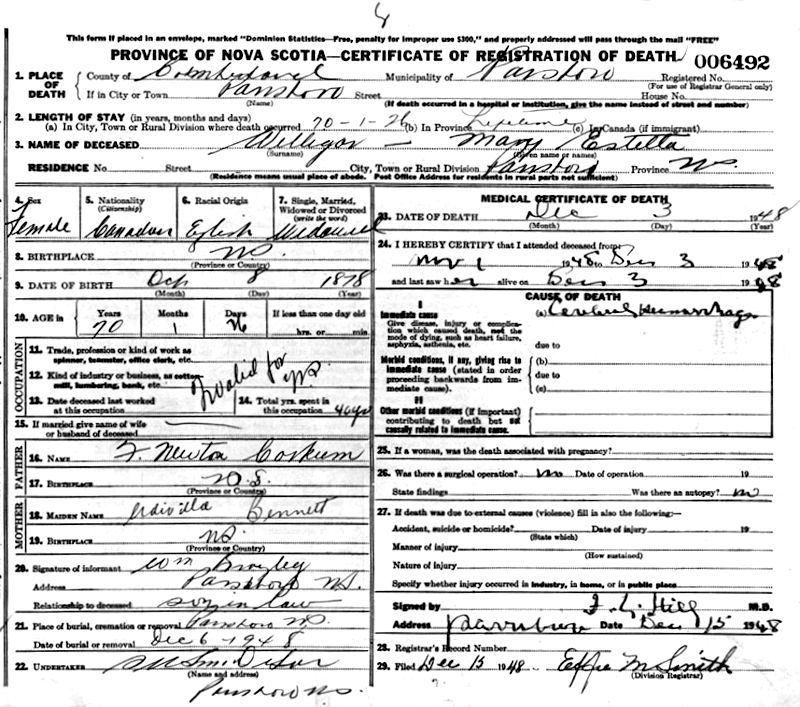 This form if placed in an envelope, marked "Dominion Statistics—Free, penalty for improper use $300," and properly addressed will pass through the mail "FREE"
PROVINCE OF NOVA SCOTIA—CERTIFICATE OF REGISTRATION OF DEATH 006492
1. PLACE OF DEATH County of Municipality of Registered No.
(For use of Registrar General only)
If in City or Town Street House No.
(Name) (If death occurred in a hospital or institution, give the name instead of street and number)
2. LENGTH OF STAY (in years, months and days)
(a) In City, Town or Rural Division where death occurred 70-1-26 (b) In Province Lifetime (c) In Canada (if immigrant)
3. NAME OF DECEASED — Mary Estella
(Surname) (Given name or names)
RESIDENCE No. Street City, Town or Rural Division Province N.S.
(Residence means usual place of abode. Post Office Address for residents in rural parts not sufficient)
4. Sex 5. Nationality 6. Racial Origin 7. Single, Married, Widowed or Divorced
(Citizenship) (write the word)
Female Canadian English Widowed
8. BIRTHPLACE N.S.
(Province or Country)
9. DATE OF BIRTH 8 1878
(Month) (Day) (Year)
10. AGE in Years Months Days If less than one day old
70 1 26 hrs. or min.
OCCUPATION
11. Trade, profession or kind of work as spinner, teamster, office clerk, etc.
12. Kind of industry or business, as cotton mill, lumbering, bank, etc.
Invalid for yrs
13. Date deceased last worked at this occupation 14. Total yrs. spent in this occupation 40 yrs
15. If married give name of wife or husband of deceased
FATHER
16. NAME Newton
17. BIRTHPLACE N.S.
(Province or Country)
MOTHER
18. MAIDEN NAME Bennett
19. BIRTHPLACE N.S.
(Province or Country)
20. Signature of informant Wm
Address N.S.
Relationship to deceased son in law
21. Place of burial, cremation or removal N.S.
Date of burial or removal Dec 6 - 1948
22. UNDERTAKER
(Name and address)
N.S.
MEDICAL CERTIFICATE OF DEATH
23. DATE OF DEATH Dec 3 1948
(Month) (Day) (Year)
24. I HEREBY CERTIFY that I attended deceased from:
Nov 1 1948 to Dec 3 1948
and last saw her alive on Dec 3 1948
CAUSE OF DEATH
I
Immediate cause (a) Cerebral Hemorrhage
Give disease, injury or complication which caused death, not the mode of dying, such as heart failure, asphyxia, asthenia, etc.
due to
Morbid conditions, if any, giving rise to immediate cause (stated in order proceeding backwards from immediate cause).
(b)
due to
(c)
II
Other morbid conditions (if important) contributing to death but not causally related to immediate cause.
25. If a woman, was the death associated with pregnancy?
26. Was there a surgical operation? no Date of operation 19
State findings Was there an autopsy? no
27. If death was due to external causes (violence) fill in also the following:—
Accident, suicide or homicide? Date of injury 19
(State which)
Manner of injury
(How sustained)
Nature of injury
Specify whether injury occurred in industry, in home, or in public place
Signed by Hill M.D.
Address Date Dec 15 1948
28. Registrar's Record Number
29. Filed Dec 15 1948 Effie M Smith
(Division Registrar)